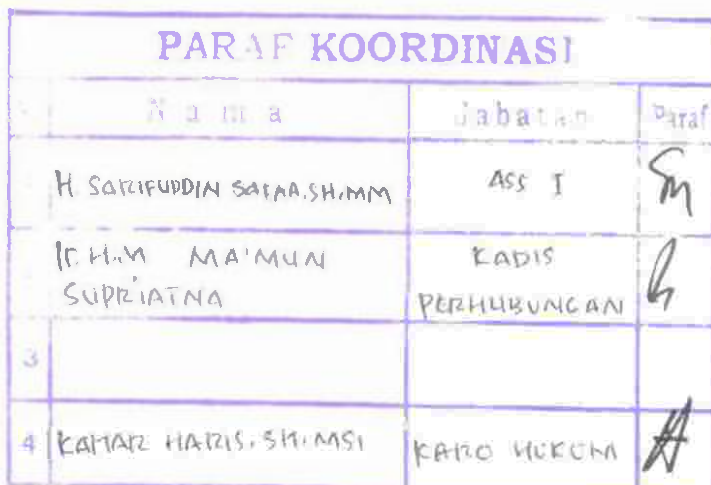 PARAF KOORDINASI
Nama Jabatan Paraf
H. SARIFUDDIN SAFAA.SH.MM ASS I
Ir. H.M MA'MUN SUPRIATNA KADIS PERHUBUNGAN
3
4 KAMAR HARIS.SH.MSI KARO HUKUM